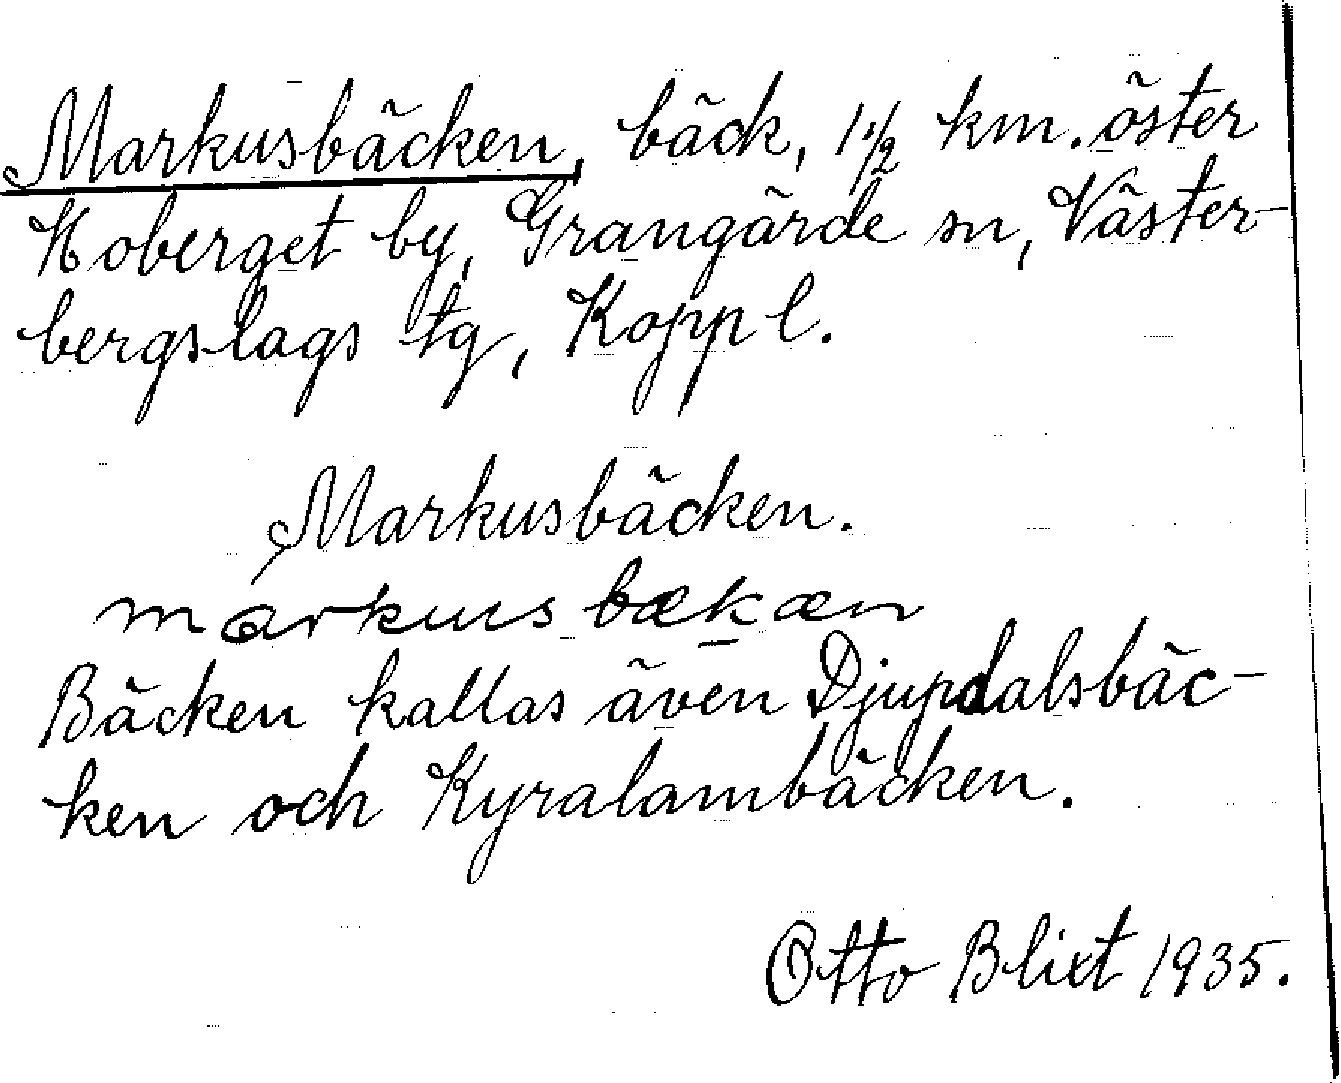 Markusbäcken, bäck, 1 1/2 km. öster
Hoberget by, Grangärde sn, Väster-
bergslags tg, Kopp l.
Markusbäcken.
markus bækæn
Bäcken kallas även Djupdalsbäc-
ken och Kyralambäcken.
Otto Blixt 1935.